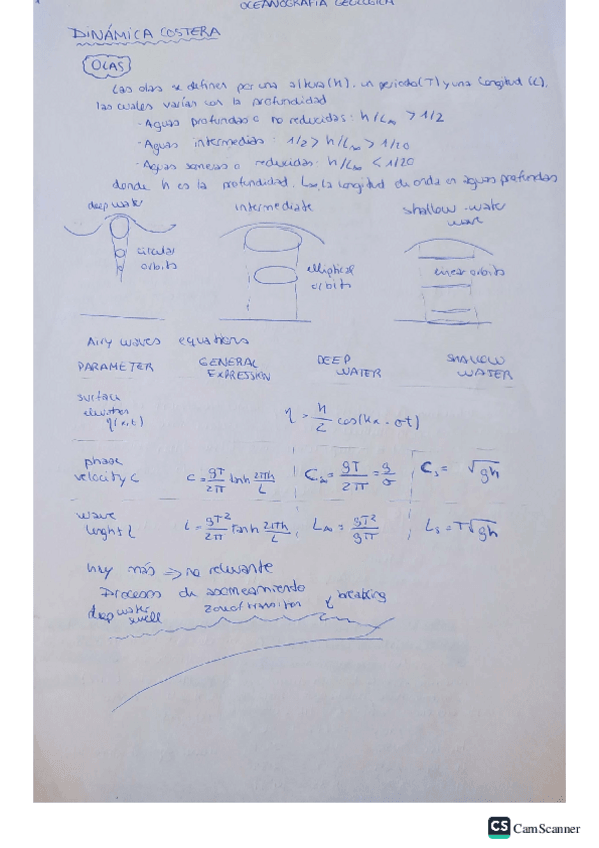 OCEANOGRAFÍA GEOLÓGICA
DINÁMICA COSTERA
OLAS
Las olas se definen por una altura (h), un periodo (T) y una longitud (L),
las cuales varían con la profundidad
- Aguas profundas o no reducidas: h/L∞ > 1/2
- Aguas intermedias: 1/2 > h/L∞ > 1/20
- Aguas someras o reducidas: h/L∞ < 1/20
donde h es la profundidad, L∞ la longitud de onda en aguas profundas
deep water intermediate shallow-water wave
circular orbits elliptical orbits linear orbits
Airy waves equations
PARAMETER GENERAL EXPRESSION DEEP WATER SHALLOW WATER
surface elevation η(x,t) η = h/2 cos(kx - σt)
phase velocity c C = gT/2π tanh 2πh/L C∞ = gT/2π = g/σ Cs = √gh
wave lenght L L = gT²/2π tanh 2πh/L L∞ = gT²/gπ Ls = T√gh
hay más => no relevante
Procesos de asomeamiento
deep water swell zone of transition breaking
CS CamScanner